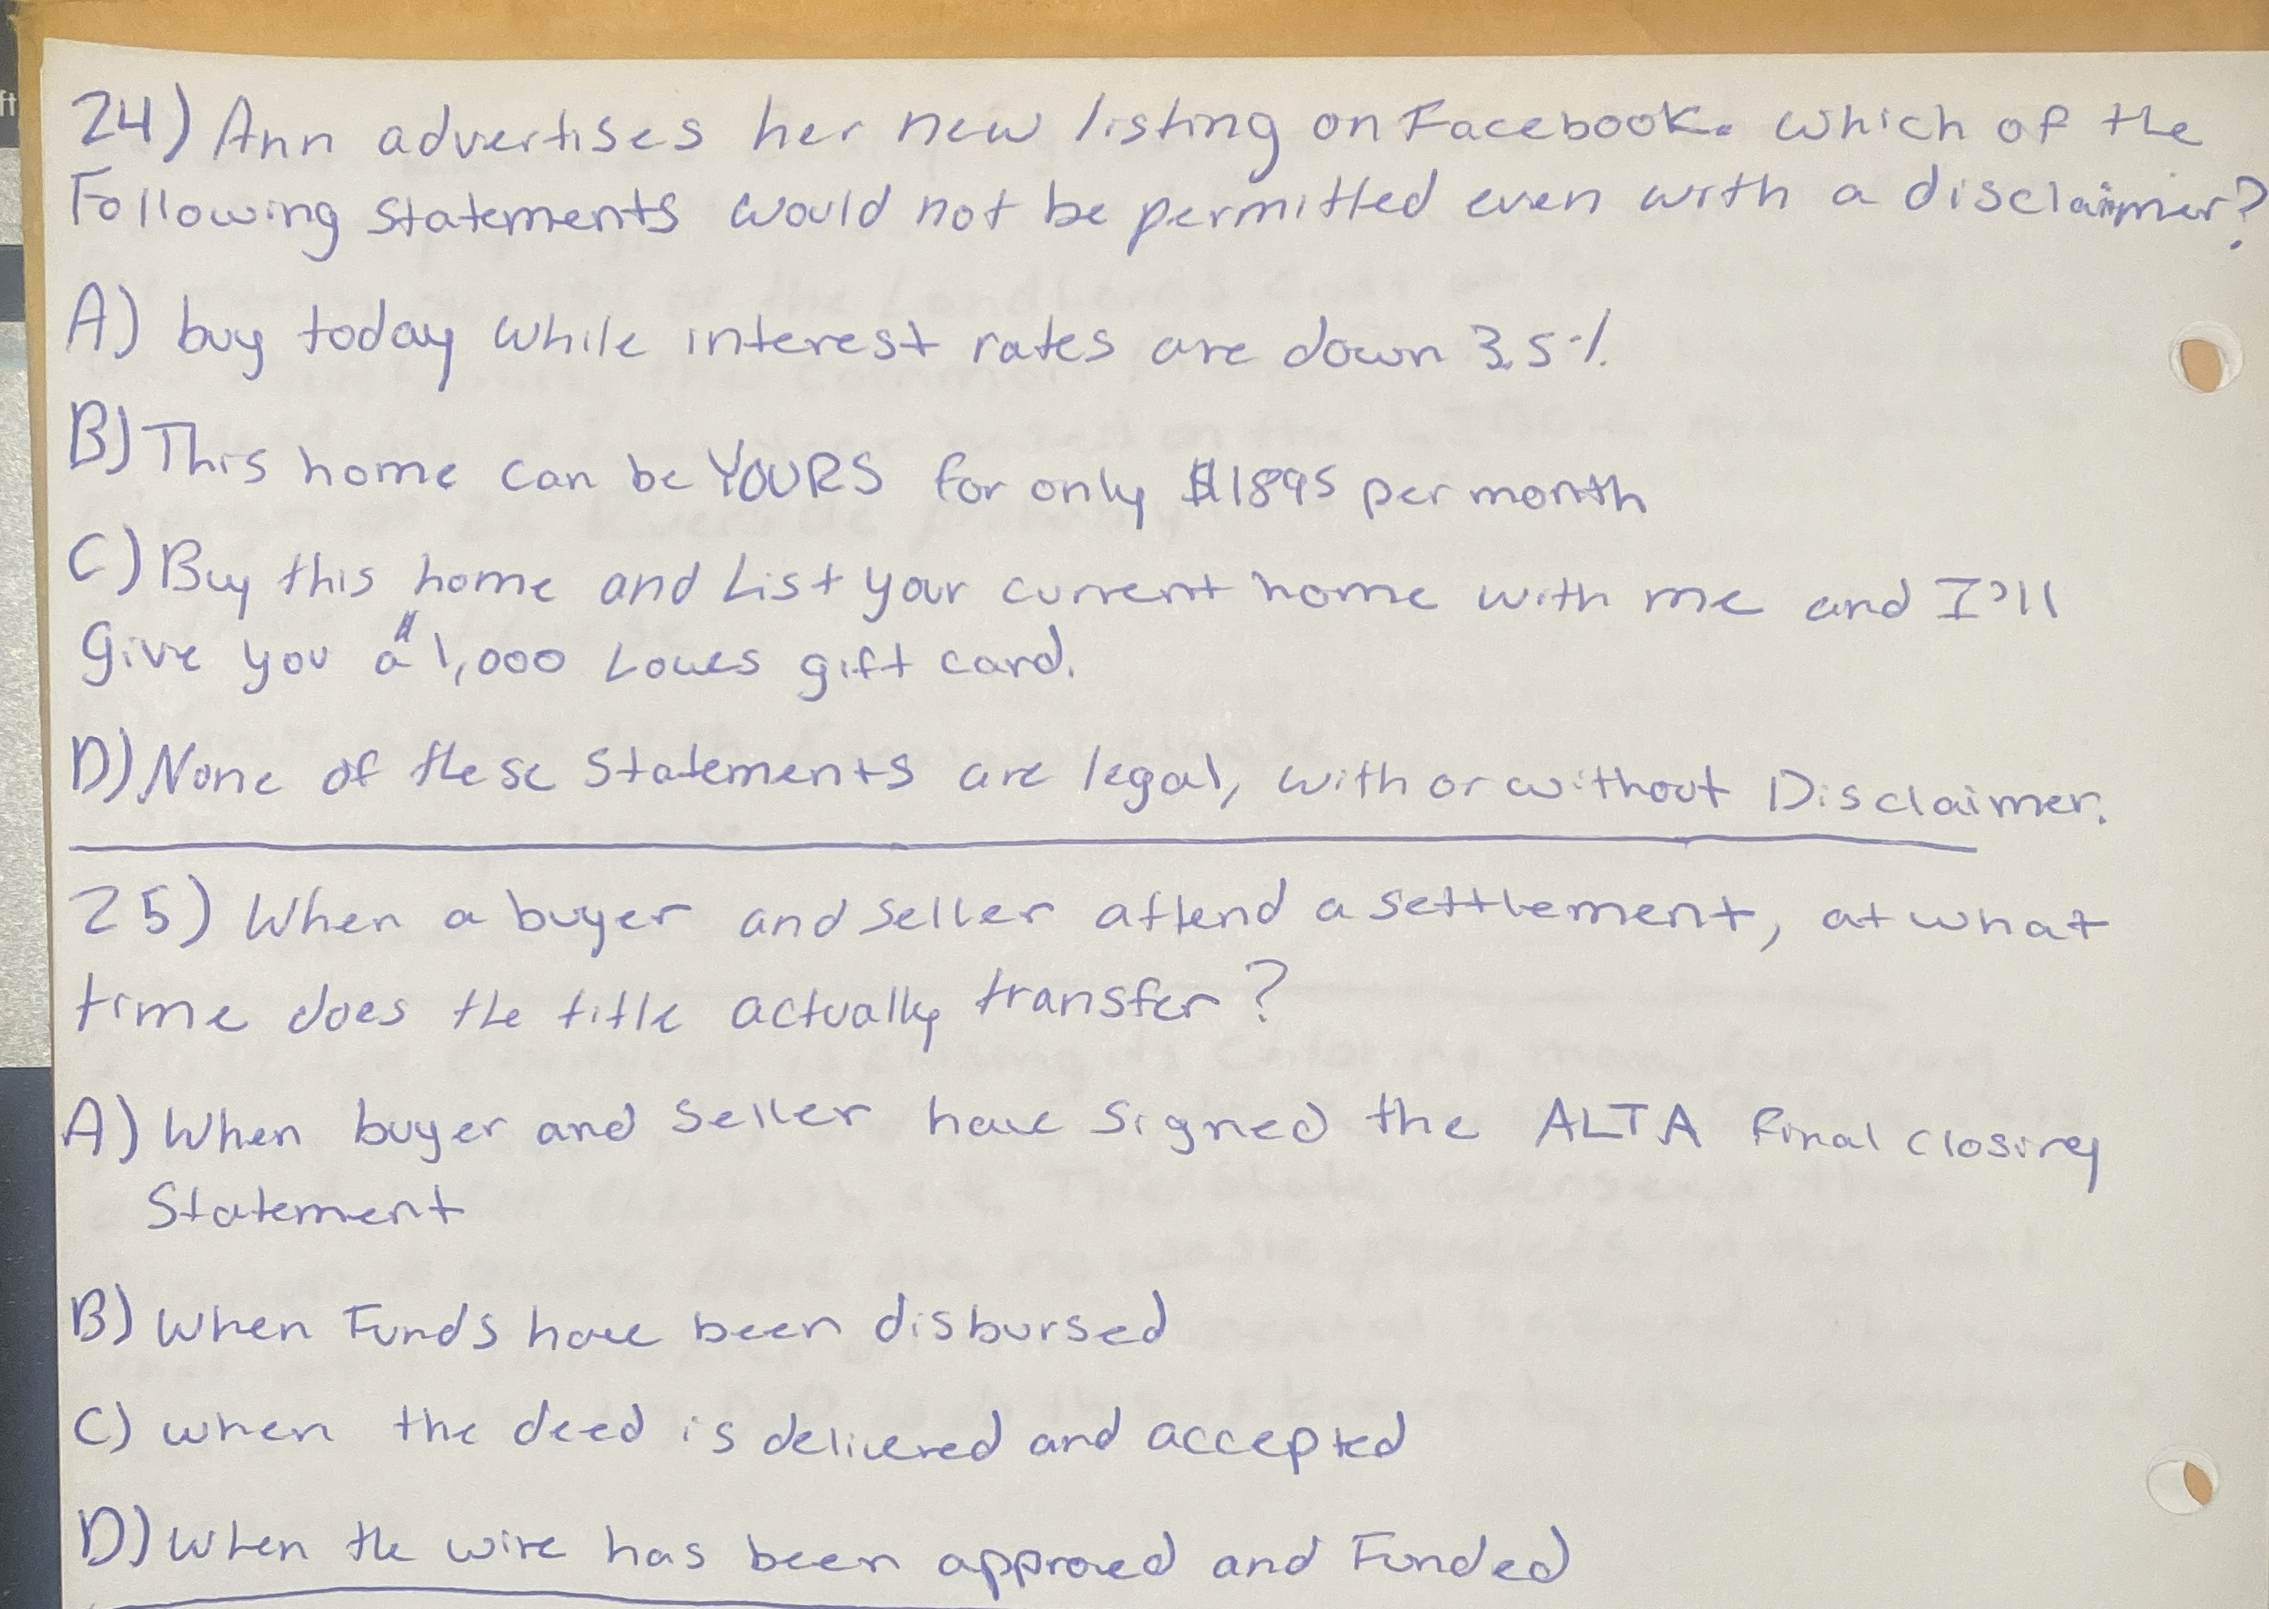 ft
24) Ann advertises her new listing on Facebook. Which of the
Following statements would not be permitted even with a disclaimer?
A) buy today while interest rates are down 3.5%
B) This home can be YOURS for only $1895 per month
C) Buy this home and List your current home with me and I'll
give you a $1,000 Lowes gift card.
D) None of these statements are legal, with or without Disclaimer.
25) When a buyer and seller attend a settlement, at what
time does the title actually transfer?
A) When buyer and seller have signed the ALTA final closing
Statement
B) When Funds have been disbursed
C) when the deed is delivered and accepted
D) When the wire has been approved and Funded